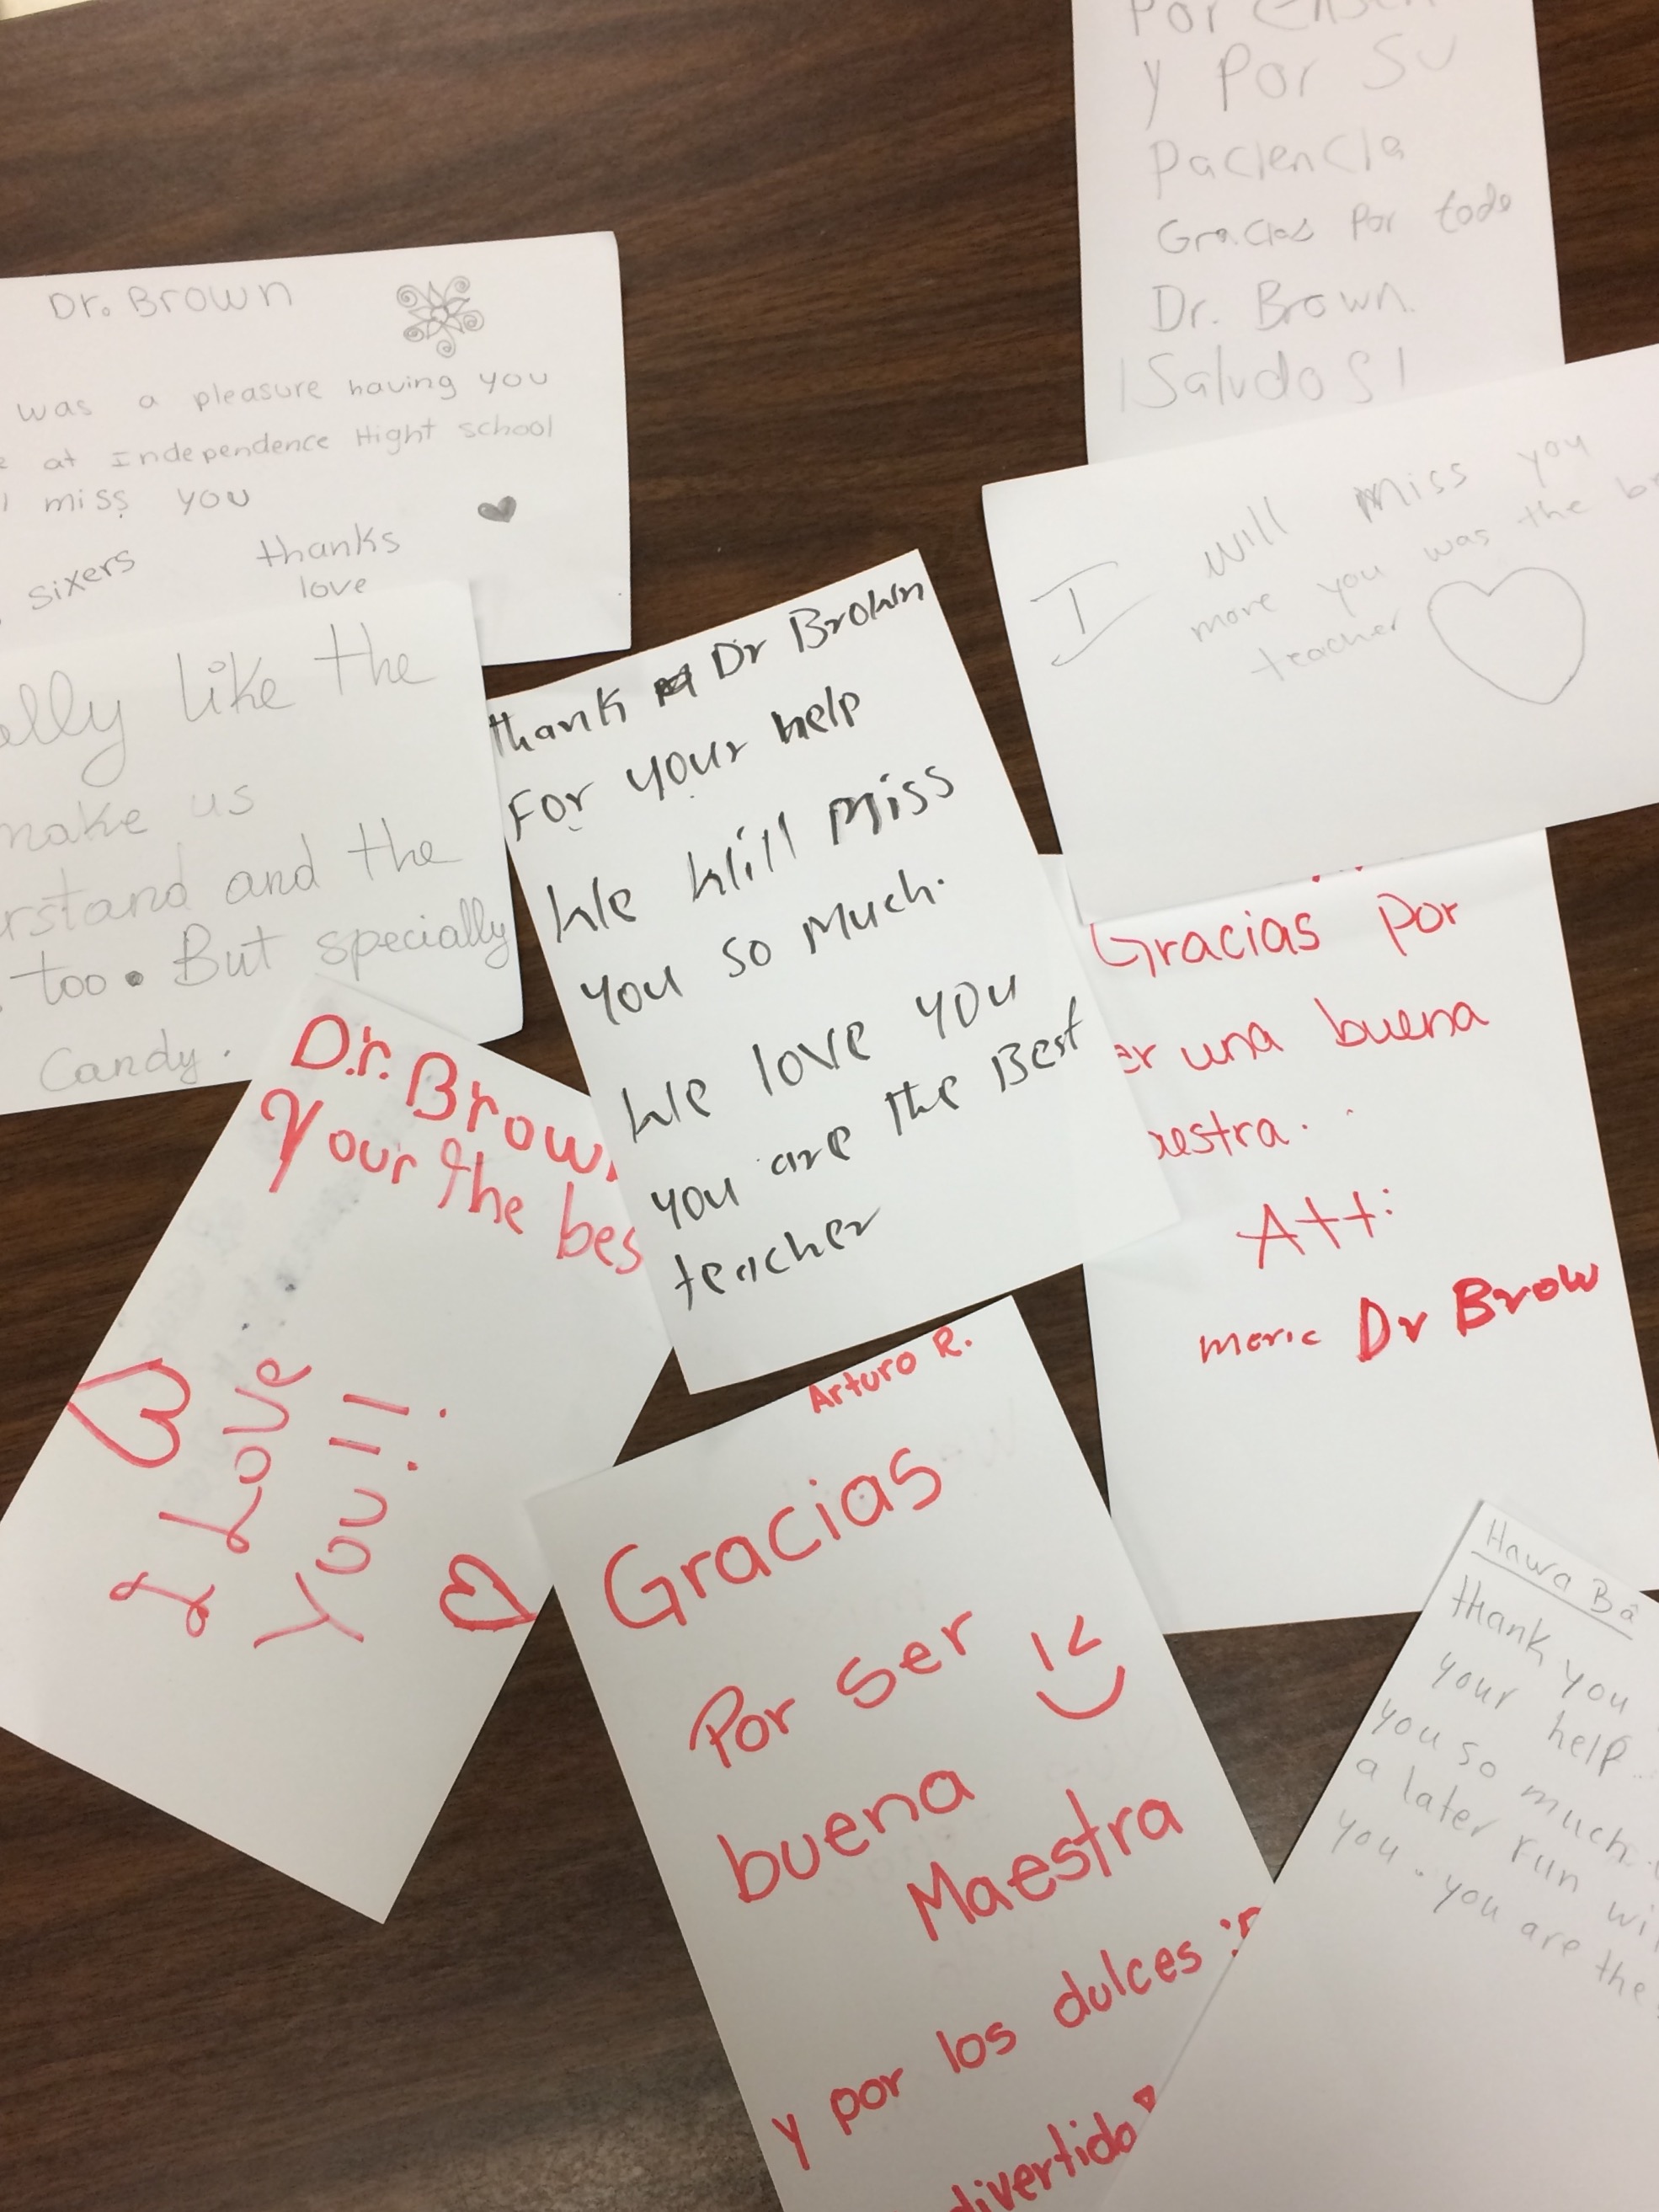 y por su
Paciencia
Gracias por todo
Dr. Brown.
¡Saludos!
Dr. Brown
was a pleasure having you
at Independence Hight school
miss you
sixers thanks
love
I will miss you
more you was the
teacher
like the
make us
and the
too. But specially
Candy.
thank Dr Brown
For your help
We Will Miss
you so much.
We love you
you are the Best
teacher
Gracias por
una buena
Att:
Dr Brow
Dr. Brow
Your the bes
I Love
You!!
Arturo R.
Gracias
Por ser
buena
Maestra
y por los dulces
divertido
Hawa Bâ
thank you
your help..
you so much.
a later run
you.. you are the